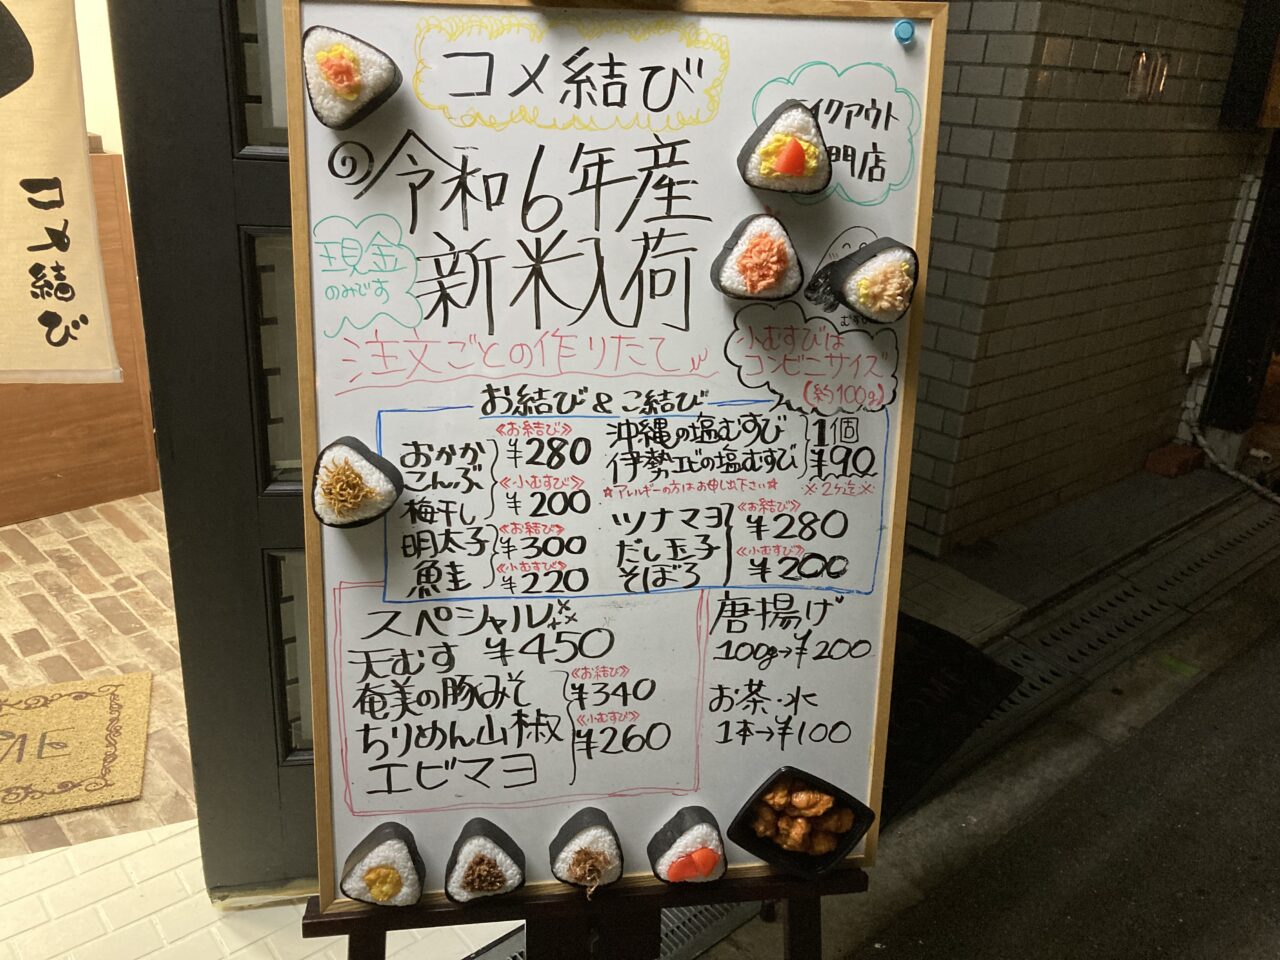 コメ結び
テイクアウト
専門店
令和6年産
新米入荷
現金
のみです
注文ごとの作りたて
小むすびは
コンビニサイズ
(約100g)
お結び&こ結び
おかか
こんぶ
梅干し
《お結び》
¥280
《小むすび》
¥200
明太子
鮭
《お結び》
¥300
《小むすび》
¥220
沖縄の塩むすび
伊勢エビの塩むすび
1個
¥90
☆アレルギーの方はお申し出下さい☆
※2ケ迄※
ツナマヨ
だし玉子
そぼろ
《お結び》
¥280
《小むすび》
¥200
スペシャル
天むす ¥450
奄美の豚みそ
ちりめん山椒
エビマヨ
《お結び》
¥340
《小むすび》
¥260
唐揚げ
100g→¥200
お茶・水
1本→¥100
コメ結び